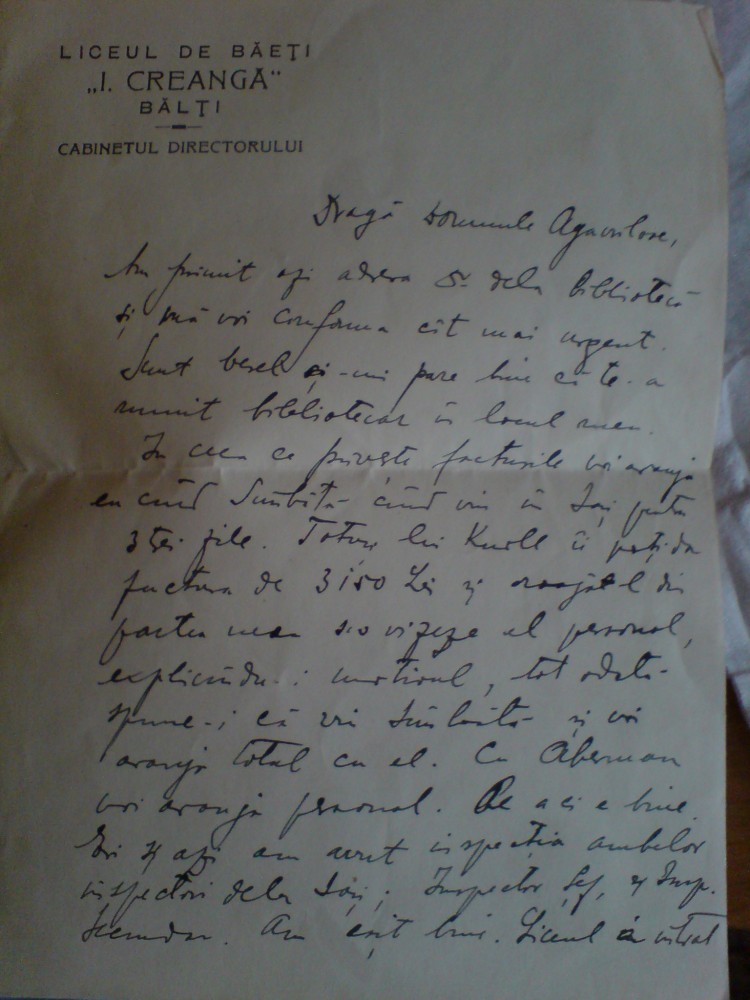 LICEUL DE BĂEȚI
„I. CREANGĂ"
BĂLȚI
CABINETUL DIRECTORULUI
Dragă Domnule Agavriloae,
Am primit azi adresa D. dela bibliotecă
și mă voi conforma cît mai urgent.
Sunt vesel și-mi pare bine că te-a
numit bibliotecar în locul meu.
În ceea ce privește facturile voi aranja
eu cînd Sîmbătă cînd vin în Iași pentru
3 zile. Totuși lui îi poți da
factura de 3150 Lei și din
partea mea s-o vizeze el personal,
explicîndu-i motivul, tot odată
spune-i că vin Sîmbătă și voi
aranja totul cu el. Cu Aberman
voi aranja personal. Pe aci e bine.
Eri și azi am avut inspecția ambelor
inspectori dela Iași; Inspector Șef, și Insp.
Secundar. Am eșit bine. Liceul a intrat